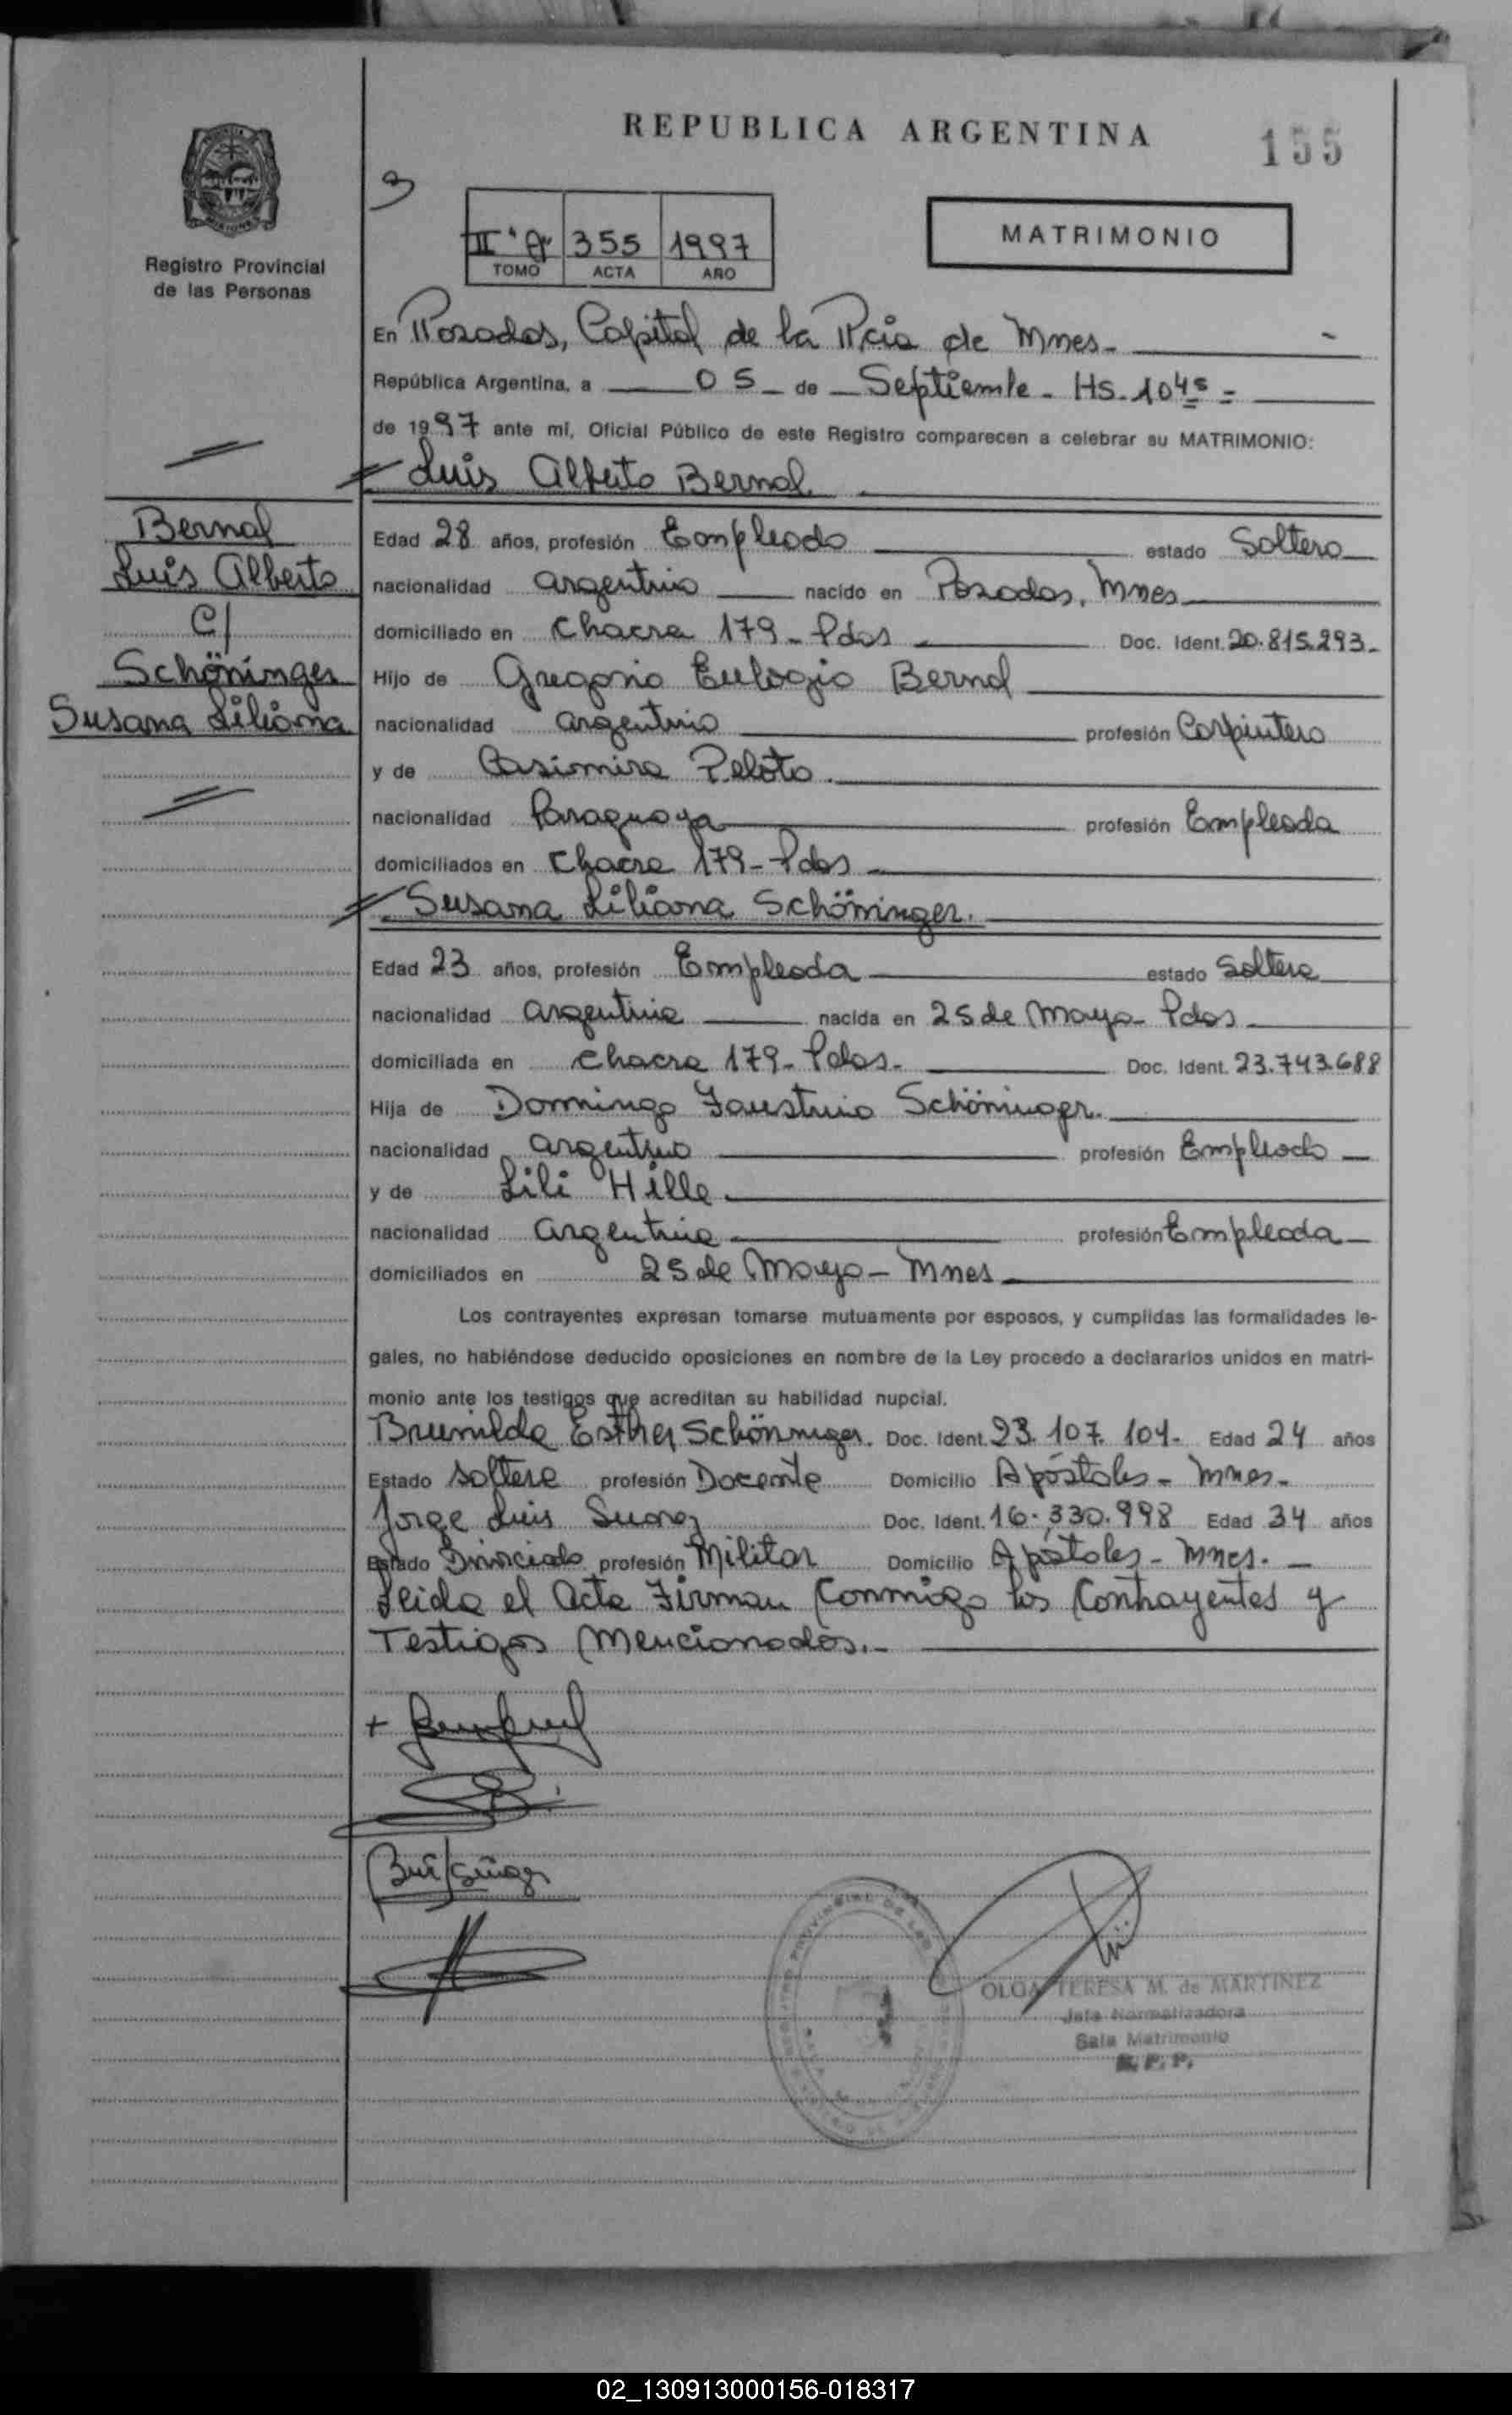 REPUBLICA ARGENTINA
155
3
II 355 1997
TOMO ACTA AÑO
MATRIMONIO
Registro Provincial
de las Personas
En Posadas, Capital de la Pcia de Mnes-
República Argentina, a 05 de Septiembre - Hs. 10 45 =
de 1997 ante mí, Oficial Público de este Registro comparecen a celebrar su MATRIMONIO:
Luis Alberto Bernal
Bernal
Luis Alberto
C/
Schöninger
Susana Liliana
Edad 28 años, profesión Empleado estado Soltero
nacionalidad argentino nacido en Posadas, Mnes
domiciliado en Chacra 179 - Pdas Doc. Ident. 20.815.293.-
Hijo de Gregorio Eulogio Bernal
nacionalidad argentino profesión Carpintero
y de Casimira Peloto.
nacionalidad Paraguaya profesión Empleada
domiciliados en Chacra 179 - Pdas
Susana Liliana Schöninger.
Edad 23 años, profesión Empleada estado Soltera
nacionalidad argentina nacida en 25 de Mayo - Pdas
domiciliada en Chacra 179 - Pdas. Doc. Ident. 23.743.688
Hija de Domingo Faustino Schöninger.
nacionalidad argentino profesión Empleado
y de Lili Hille
nacionalidad argentina profesión Empleada
domiciliados en 25 de Mayo - Mnes
Los contrayentes expresan tomarse mutuamente por esposos, y cumplidas las formalidades le-
gales, no habiéndose deducido oposiciones en nombre de la Ley procedo a declararlos unidos en matri-
monio ante los testigos que acreditan su habilidad nupcial.
Brunilda Esther Schöninger. Doc. Ident. 23.107.104- Edad 24 años
Estado soltera profesión Docente Domicilio Apóstoles - Mnes-
Jorge Luis Suarez Doc. Ident. 16.330.998 Edad 34 años
Estado Divorciado profesión Militar Domicilio Apóstoles - Mnes.
Leida el Acta Firman Conmigo los Contrayentes y
Testigos Mencionados.-
OLGA TERESA M. de MARTINEZ
Jefa Normalizadora
Sala Matrimonio
R. P. P.
02_130913000156-018317